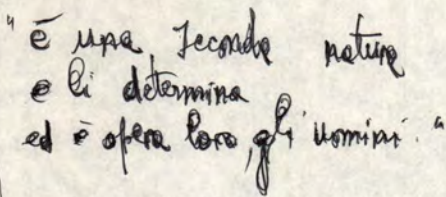 "è una seconda natura
e li determina
ed è opera loro, gli uomini."